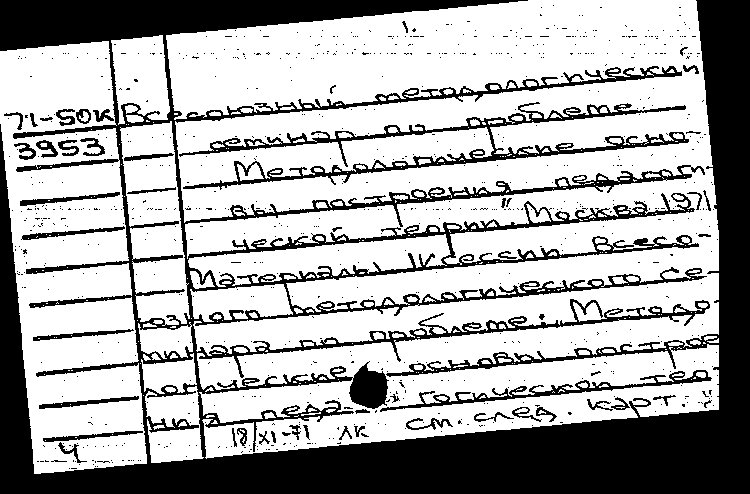 1.
71-50к Всесоюзный методологический
3953 семинар по проблеме
"Методологические осно-
вы построения педагоги-
ческой теории". Москва. 1971.
Материалы IV сессии Всесо-
юзного методологического се-
минара по проблеме: "Методо-
логические основы построе
ния педа- гогической тео-
Ч 18/XI-71 ЛК см. след. карт. "